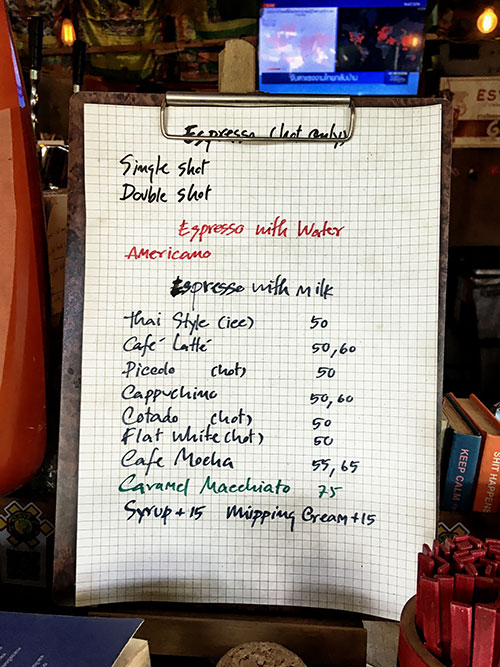 Espresso (hot only)
Single shot
Double shot
Espresso with Water
Americano
Espresso with Milk
Thai Style (ice) 50
Café Latté 50,60
Piccolo (hot) 50
Cappuchino 50,60
Cotado (hot) 50
Flat White (hot) 50
Cafe Mocha 55,65
Caramel Macchiato 75
Syrup +15 Whipping Cream +15
KEEP CALM
SHIT HAPPENS